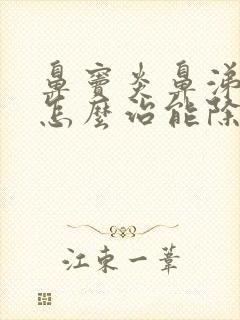 鼻窦炎鼻涕
怎麼治能除
江東一葦